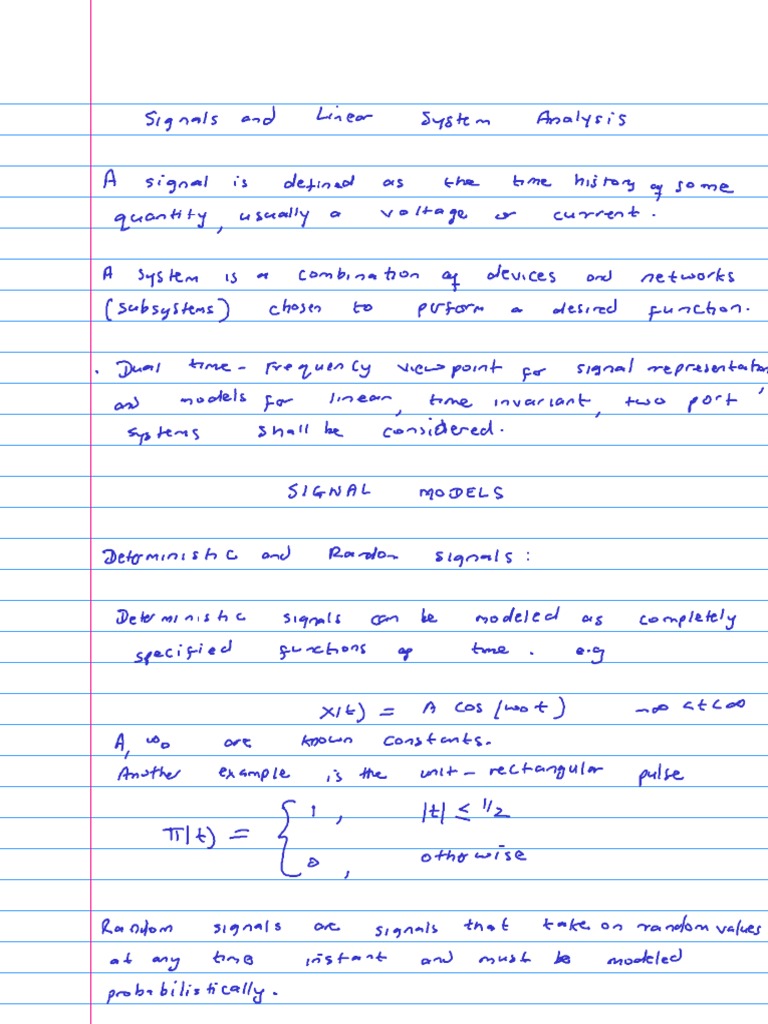 Signals and Linear System Analysis
A signal is defined as the time history of some
quantity, usually a voltage or current.
A system is a combination of devices and networks
(subsystems) chosen to perform a desired function.
. Dual time - frequency viewpoint for signal representation,
and models for linear, time invariant, two port
systems shall be considered.
SIGNAL MODELS
Deterministic and Random signals:
Deterministic signals can be modeled as completely
specified functions of time. e.g
x(t) = A cos(ω₀t) -∞ < t < ∞
A, ω₀ are known constants.
Another example is the unit - rectangular pulse
Π(t) = { 1, |t| ≤ 1/2
0, otherwise
Random signals are signals that take on random values
at any time instant and must be modeled
probabilistically.